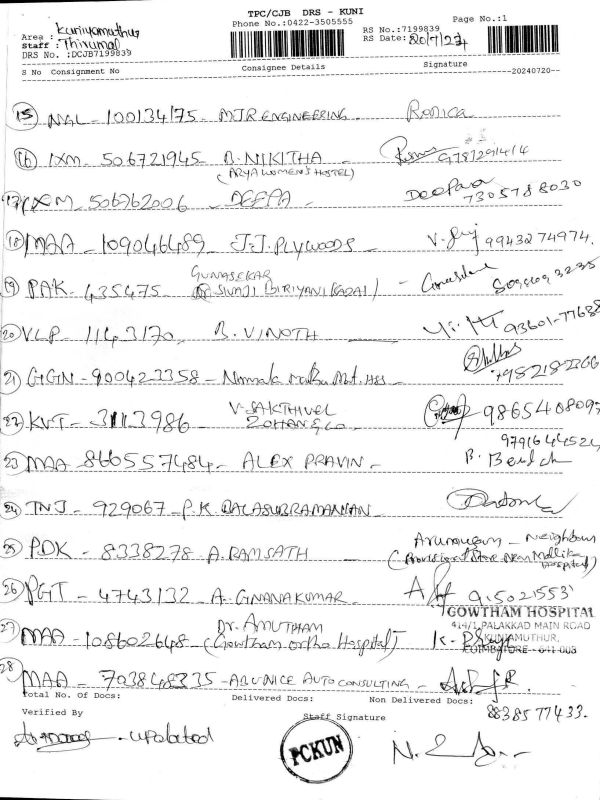 TPC/CJB DRS - KUNI
Phone No.:0422-3505555
Page No.:1
Area : Kuniyamuthur
RS No.:7199839
Staff : Thirumal
RS Date: 20/7/24
DRS No. :DCJB7199839
S No Consignment No Consignee Details Signature
20240720
15 MAL - 100134175 - MJR ENGINEERING - Ronica
16 IXM - 506721945 B. NIKITHA - 9787291414
(ARYA WOMEN'S HOSTEL)
17 IXM - 506762006 - DEEPA - Deepaa 7305788030
18 MAA - 109046489 J.J. PLYWOODS - 9943274974.
GUNASEKAR
19 PAK - 435475 - SIVAJI (BIRIYANI KADAI) -
20 VLP - 1143170 - B. VINOTH 93601-77688
21 GGN - 900423358 - Nirmala Matha Mat. Hss -
V. SAKTHIVEL
22 KVT - 3113986 - ZOHAN & Co - 9865408097
9791644524
23 MAA 8665557484 - ALEX PRAVIN -
24 TNJ - 929067 - P.K. BALASUBRAMANIAN -
Arumugam - Neighbour
25 PDK - 8338278 - A. RAMSATH - (Provision Store Near Mallika Hospital)
26 PGT - 4743132 - A. GNANAKUMAR - 915021553
GOWTHAM HOSPITAL
414/1, PALAKKAD MAIN ROAD
KUNIAMUTHUR,
COIMBATORE - 641 008
Dr. AMUTHAM
27 MAA - 108602648 - (Gowtham ortho Hospital)
28 MAA - 7038468335 - ARUNICE AUTO CONSULTING -
Total No. Of Docs: Delivered Docs: Non Delivered Docs:
8838577433.
Verified By
Staff Signature
- updated
PCKUN